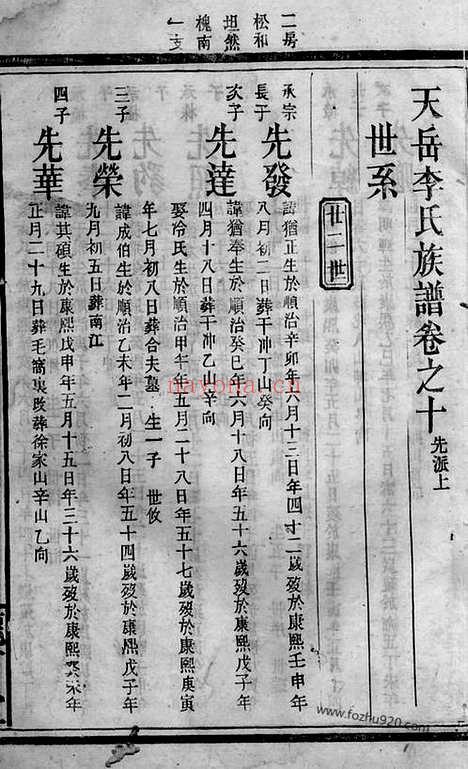 二房
松和
坦然
槐南
一支
天岳李氏族譜卷之十 先派上
世系
廿二世
承宗
長子 先發 諱猶正生於順治辛卯年六月十三日年四十二歲歿於康熙壬申年
八月初二日葬干冲丁山癸向
次子 先達 諱猶奉生於順治癸巳年六月十八日年五十六歲歿於康熙戊子年
四月十八日葬干冲乙山辛向
娶冷氏生於順治甲午年五月二十八日年五十七歲歿於康熙庚寅
年七月初八日葬合夫墓 生一子 世攸
三子 先榮 諱成伯生於順治乙未年二月初八日年五十四歲歿於康熙戊子年
九月初五日葬南江
四子 先華 諱其碩生於康熙戊申年五月十五日年三十六歲歿於康熙癸未年
正月二十九日葬毛窩裏改葬徐家山辛山乙向
nayona.cn
www.fozhu920.com